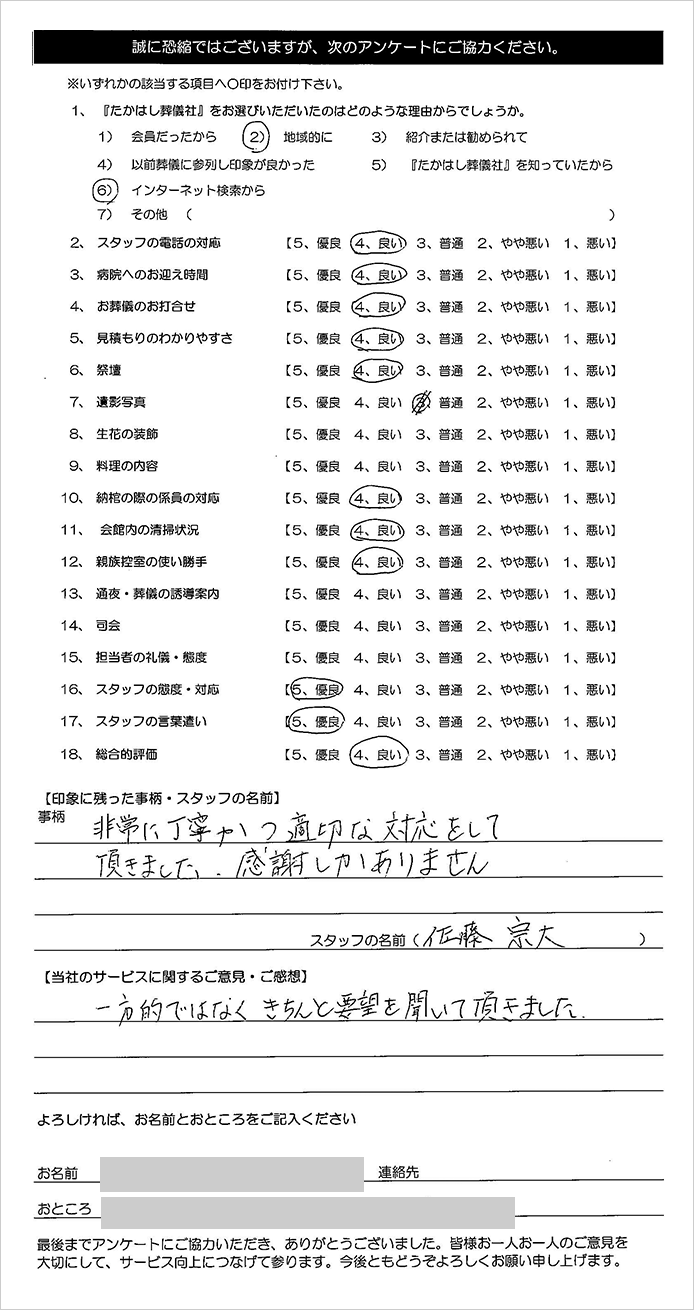 誠に恐縮ではございますが、次のアンケートにご協力ください。
※いずれかの該当する項目へ〇印をお付け下さい。
1、『たかはし葬儀社』をお選びいただいたのはどのような理由からでしょうか。
1） 会員だったから 2） 地域的に 3） 紹介または勧められて
4） 以前葬儀に参列し印象が良かった 5） 『たかはし葬儀社』を知っていたから
6） インターネット検索から
7） その他 （ ）
2、スタッフの電話の対応 【5、優良 4、良い 3、普通 2、やや悪い 1、悪い】
3、病院へのお迎え時間 【5、優良 4、良い 3、普通 2、やや悪い 1、悪い】
4、お葬儀のお打合せ 【5、優良 4、良い 3、普通 2、やや悪い 1、悪い】
5、見積もりのわかりやすさ 【5、優良 4、良い 3、普通 2、やや悪い 1、悪い】
6、祭壇 【5、優良 4、良い 3、普通 2、やや悪い 1、悪い】
7、遺影写真 【5、優良 4、良い 3、普通 2、やや悪い 1、悪い】
8、生花の装飾 【5、優良 4、良い 3、普通 2、やや悪い 1、悪い】
9、料理の内容 【5、優良 4、良い 3、普通 2、やや悪い 1、悪い】
10、納棺の際の係員の対応 【5、優良 4、良い 3、普通 2、やや悪い 1、悪い】
11、会館内の清掃状況 【5、優良 4、良い 3、普通 2、やや悪い 1、悪い】
12、親族控室の使い勝手 【5、優良 4、良い 3、普通 2、やや悪い 1、悪い】
13、通夜・葬儀の誘導案内 【5、優良 4、良い 3、普通 2、やや悪い 1、悪い】
14、司会 【5、優良 4、良い 3、普通 2、やや悪い 1、悪い】
15、担当者の礼儀・態度 【5、優良 4、良い 3、普通 2、やや悪い 1、悪い】
16、スタッフの態度・対応 【5、優良 4、良い 3、普通 2、やや悪い 1、悪い】
17、スタッフの言葉遣い 【5、優良 4、良い 3、普通 2、やや悪い 1、悪い】
18、総合的評価 【5、優良 4、良い 3、普通 2、やや悪い 1、悪い】
【印象に残った事柄・スタッフの名前】
事柄 非常に丁寧かつ適切な対応をして
頂きました。感謝しかありません
スタッフの名前（佐藤 宗大 ）
【当社のサービスに関するご意見・ご感想】
一方的ではなくきちんと要望を聞いて頂きました。
よろしければ、お名前とおところをご記入ください
お名前 連絡先
おところ
最後までアンケートにご協力いただき、ありがとうございました。皆様お一人お一人のご意見を
大切にして、サービス向上につなげて参ります。今後ともどうぞよろしくお願い申し上げます。